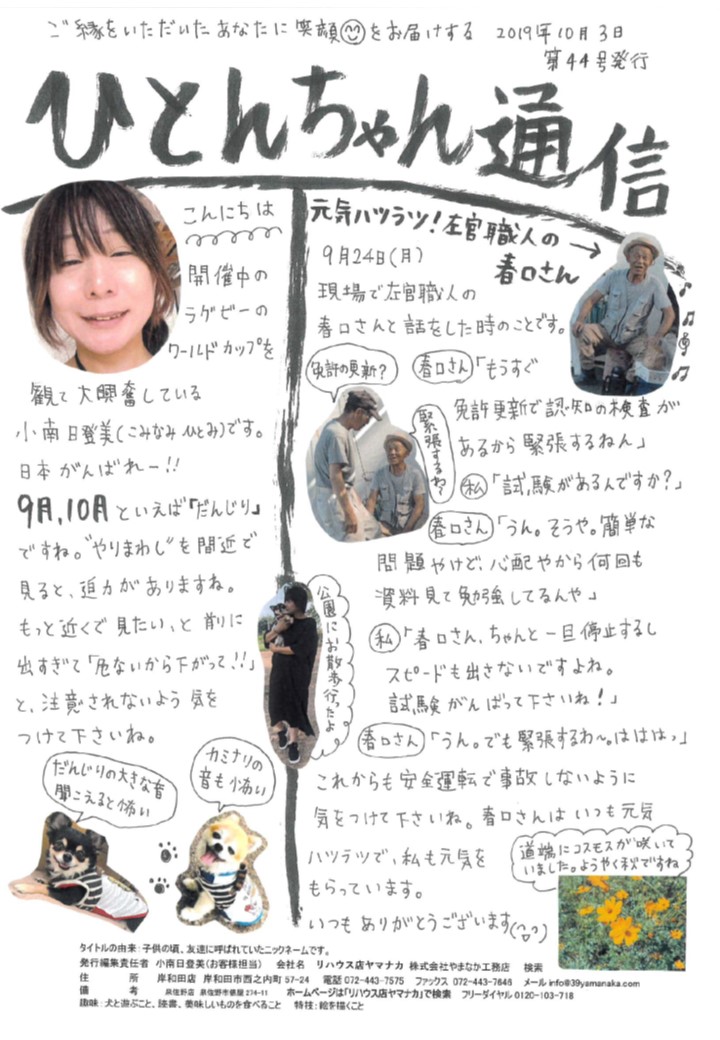 ご縁をいただいたあなたに笑顔をお届けする 2019年10月3日
第44号発行
ひとんちゃん通信
こんにちは
開催中の
ラグビーの
ワールドカップを
観て大興奮している
小南日登美(こみなみひとみ)です。
日本がんばれー!!
9月,10月といえば「だんじり」
ですね。"やりまわし"を間近で
見ると、迫力がありますね。
もっと近くで見たい、と前に
出すぎて「危ないから下がって!!」
と、注意されないよう気を
つけて下さいね。
だんじりの大きな音
聞こえると怖い
カミナリの
音も怖い
公園にお散歩行ったよ
元気ハツラツ!左官職人の
春口さん
9月24日(月)
現場で左官職人の
春口さんと話をした時のことです。
免許の更新?
緊張するわ~
春口さん「もうすぐ
免許更新で認知の検査が
あるから緊張するねん」
私「試験があるんですか?」
春口さん「うん。そうや。簡単な
問題やけど、心配やから何回も
資料見て勉強してるんや」
私「春口さん、ちゃんと一旦停止するし
スピードも出さないですよね。
試験がんばって下さいね!」
春口さん「うん。でも緊張するわ~。はははっ」
これからも安全運転で事故しないように
気をつけて下さいね。春口さんはいつも元気
ハツラツで、私も元気を
もらっています。
いつもありがとうございます
道端にコスモスが咲いて
いました。ようやく秋ですね
タイトルの由来:子供の頃、友達に呼ばれていたニックネームです。
発行編集責任者 小南日登美(お客様担当) 会社名 リハウス店ヤマナカ 株式会社やまなか工務店 検索
住 所 岸和田店 岸和田市西之内町57-24 電話 072-443-7575 ファックス 072-443-7646 メール info@39yamanaka.com
備 考 泉佐野店 泉佐野市鶴原274-11 ホームページは「リハウス店ヤマナカ」で検索 フリーダイヤル 0120-103-718
趣味:犬と遊ぶこと、読書、美味しいものを食べること 特技:絵を描くこと